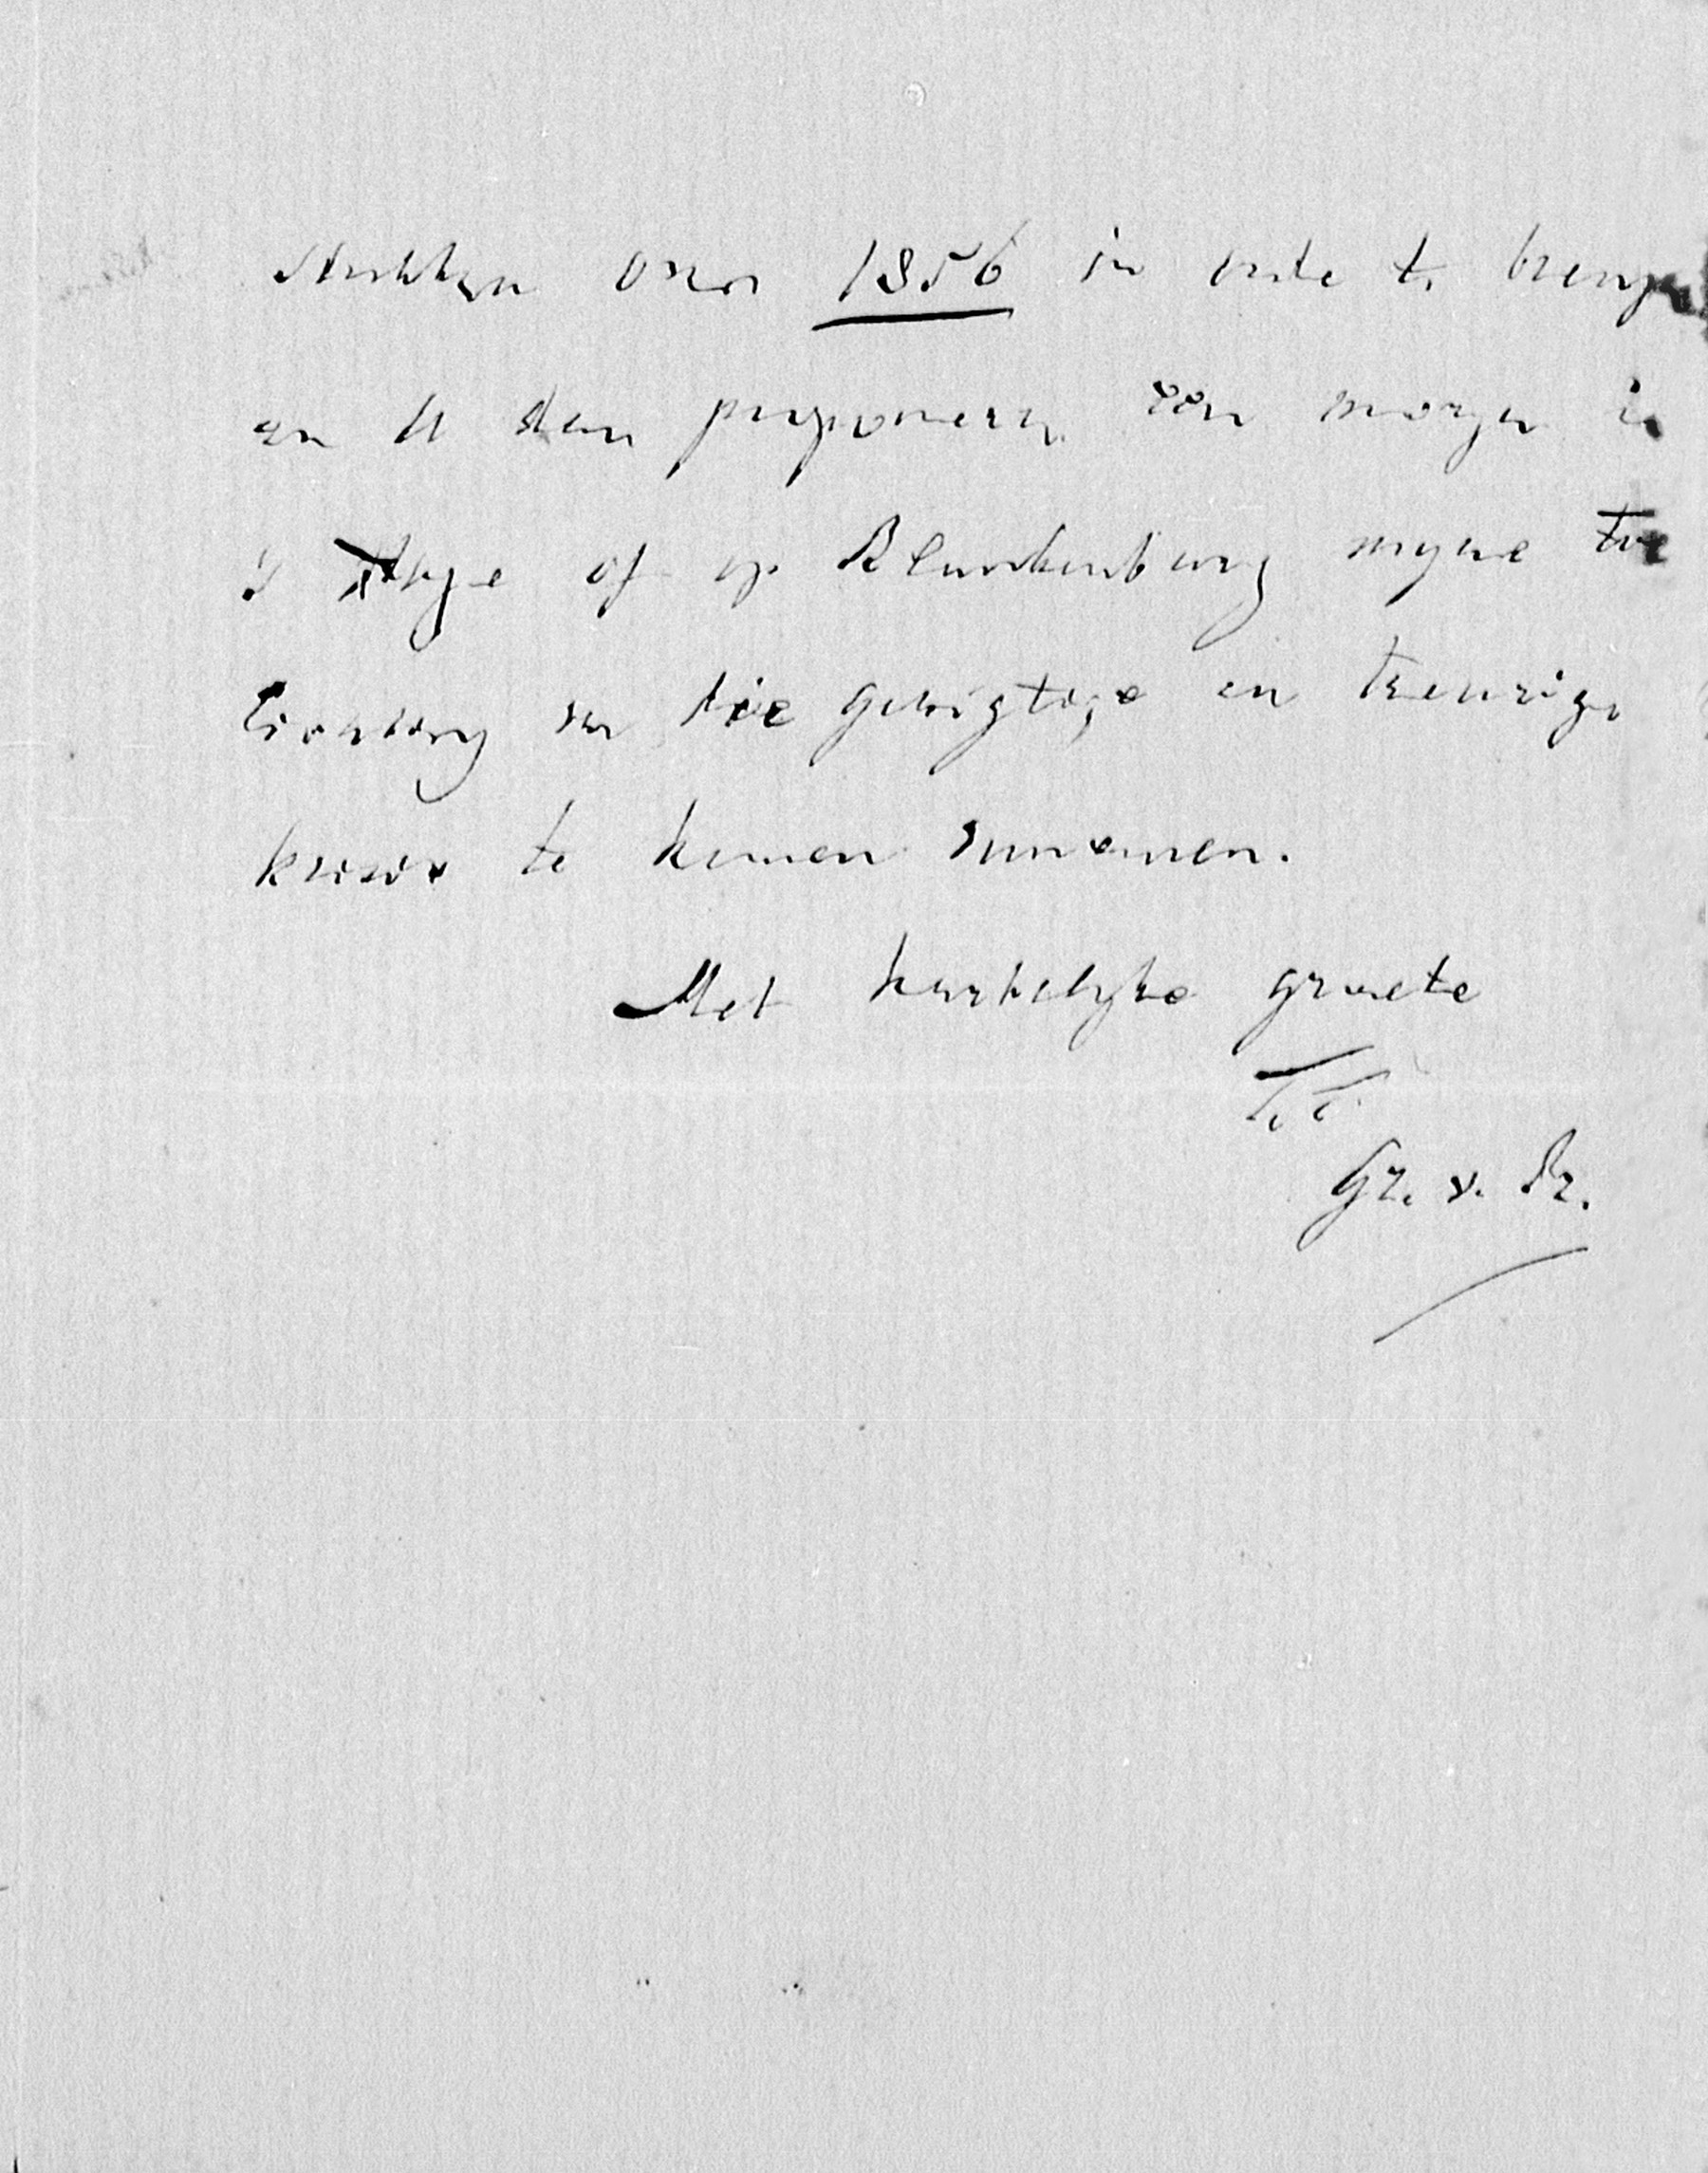 stukken over 1856 in orde te brengen
en U dan proponeren een morgen in
's Hage of op Blankenburg myne toe
lichting van die gewigtige en treurige
krisis te komen innemen.
Met hartelyke groete
T.T.
Gr. v. Pr.